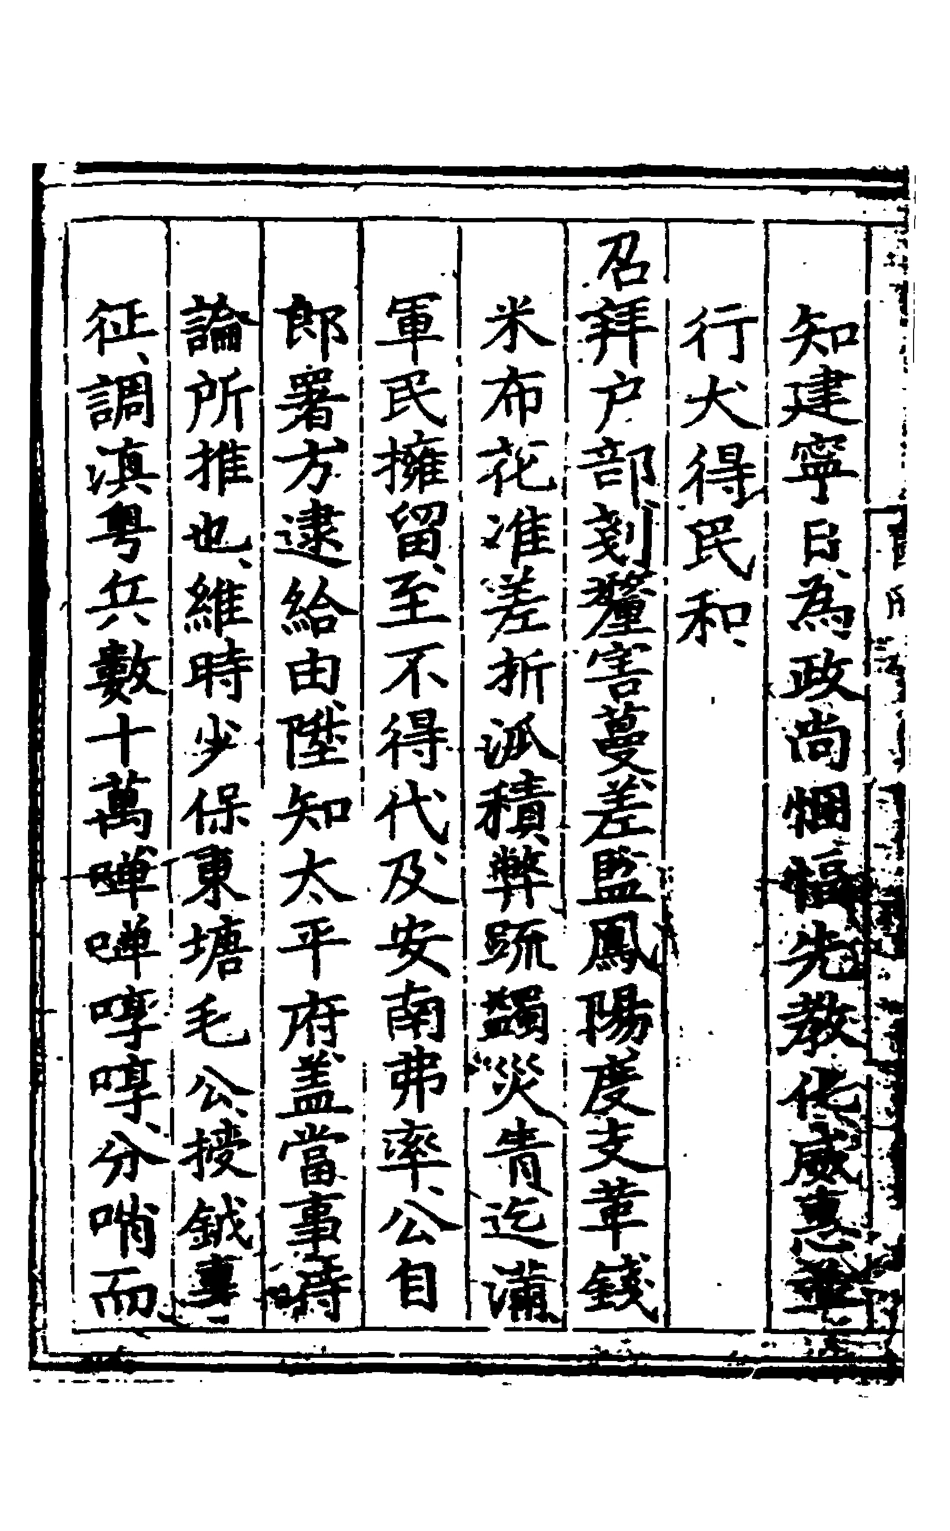 知建寧曰為政尚悃愊先教化威惠並
行大得民和
召拜户部刻釐害蔓差監鳳陽度支革錢
米布花准差折泒積弊䟽蠲災眚迄滿
軍民擁留至不得代及安南弗率公自
郎署方逮給由陞知太平府盖當事時
論所推也維時少保東塘毛公授鉞專
征調滇粤兵數十萬嘽嘽啍啍分哨而